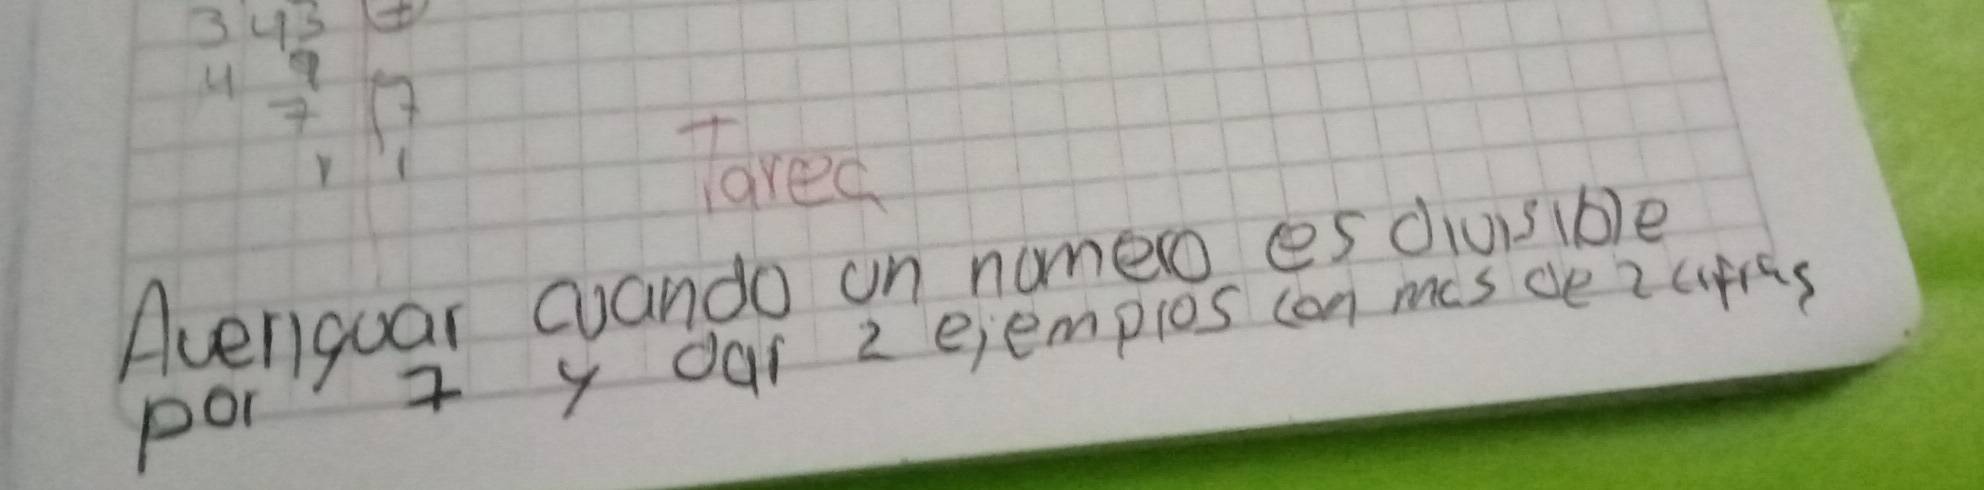 343 7
49
7 7
1 1
Tarea
Averiguar cuando un numero es divisible
por 7 y dar 2 ejemplos con mas de 2 cifras